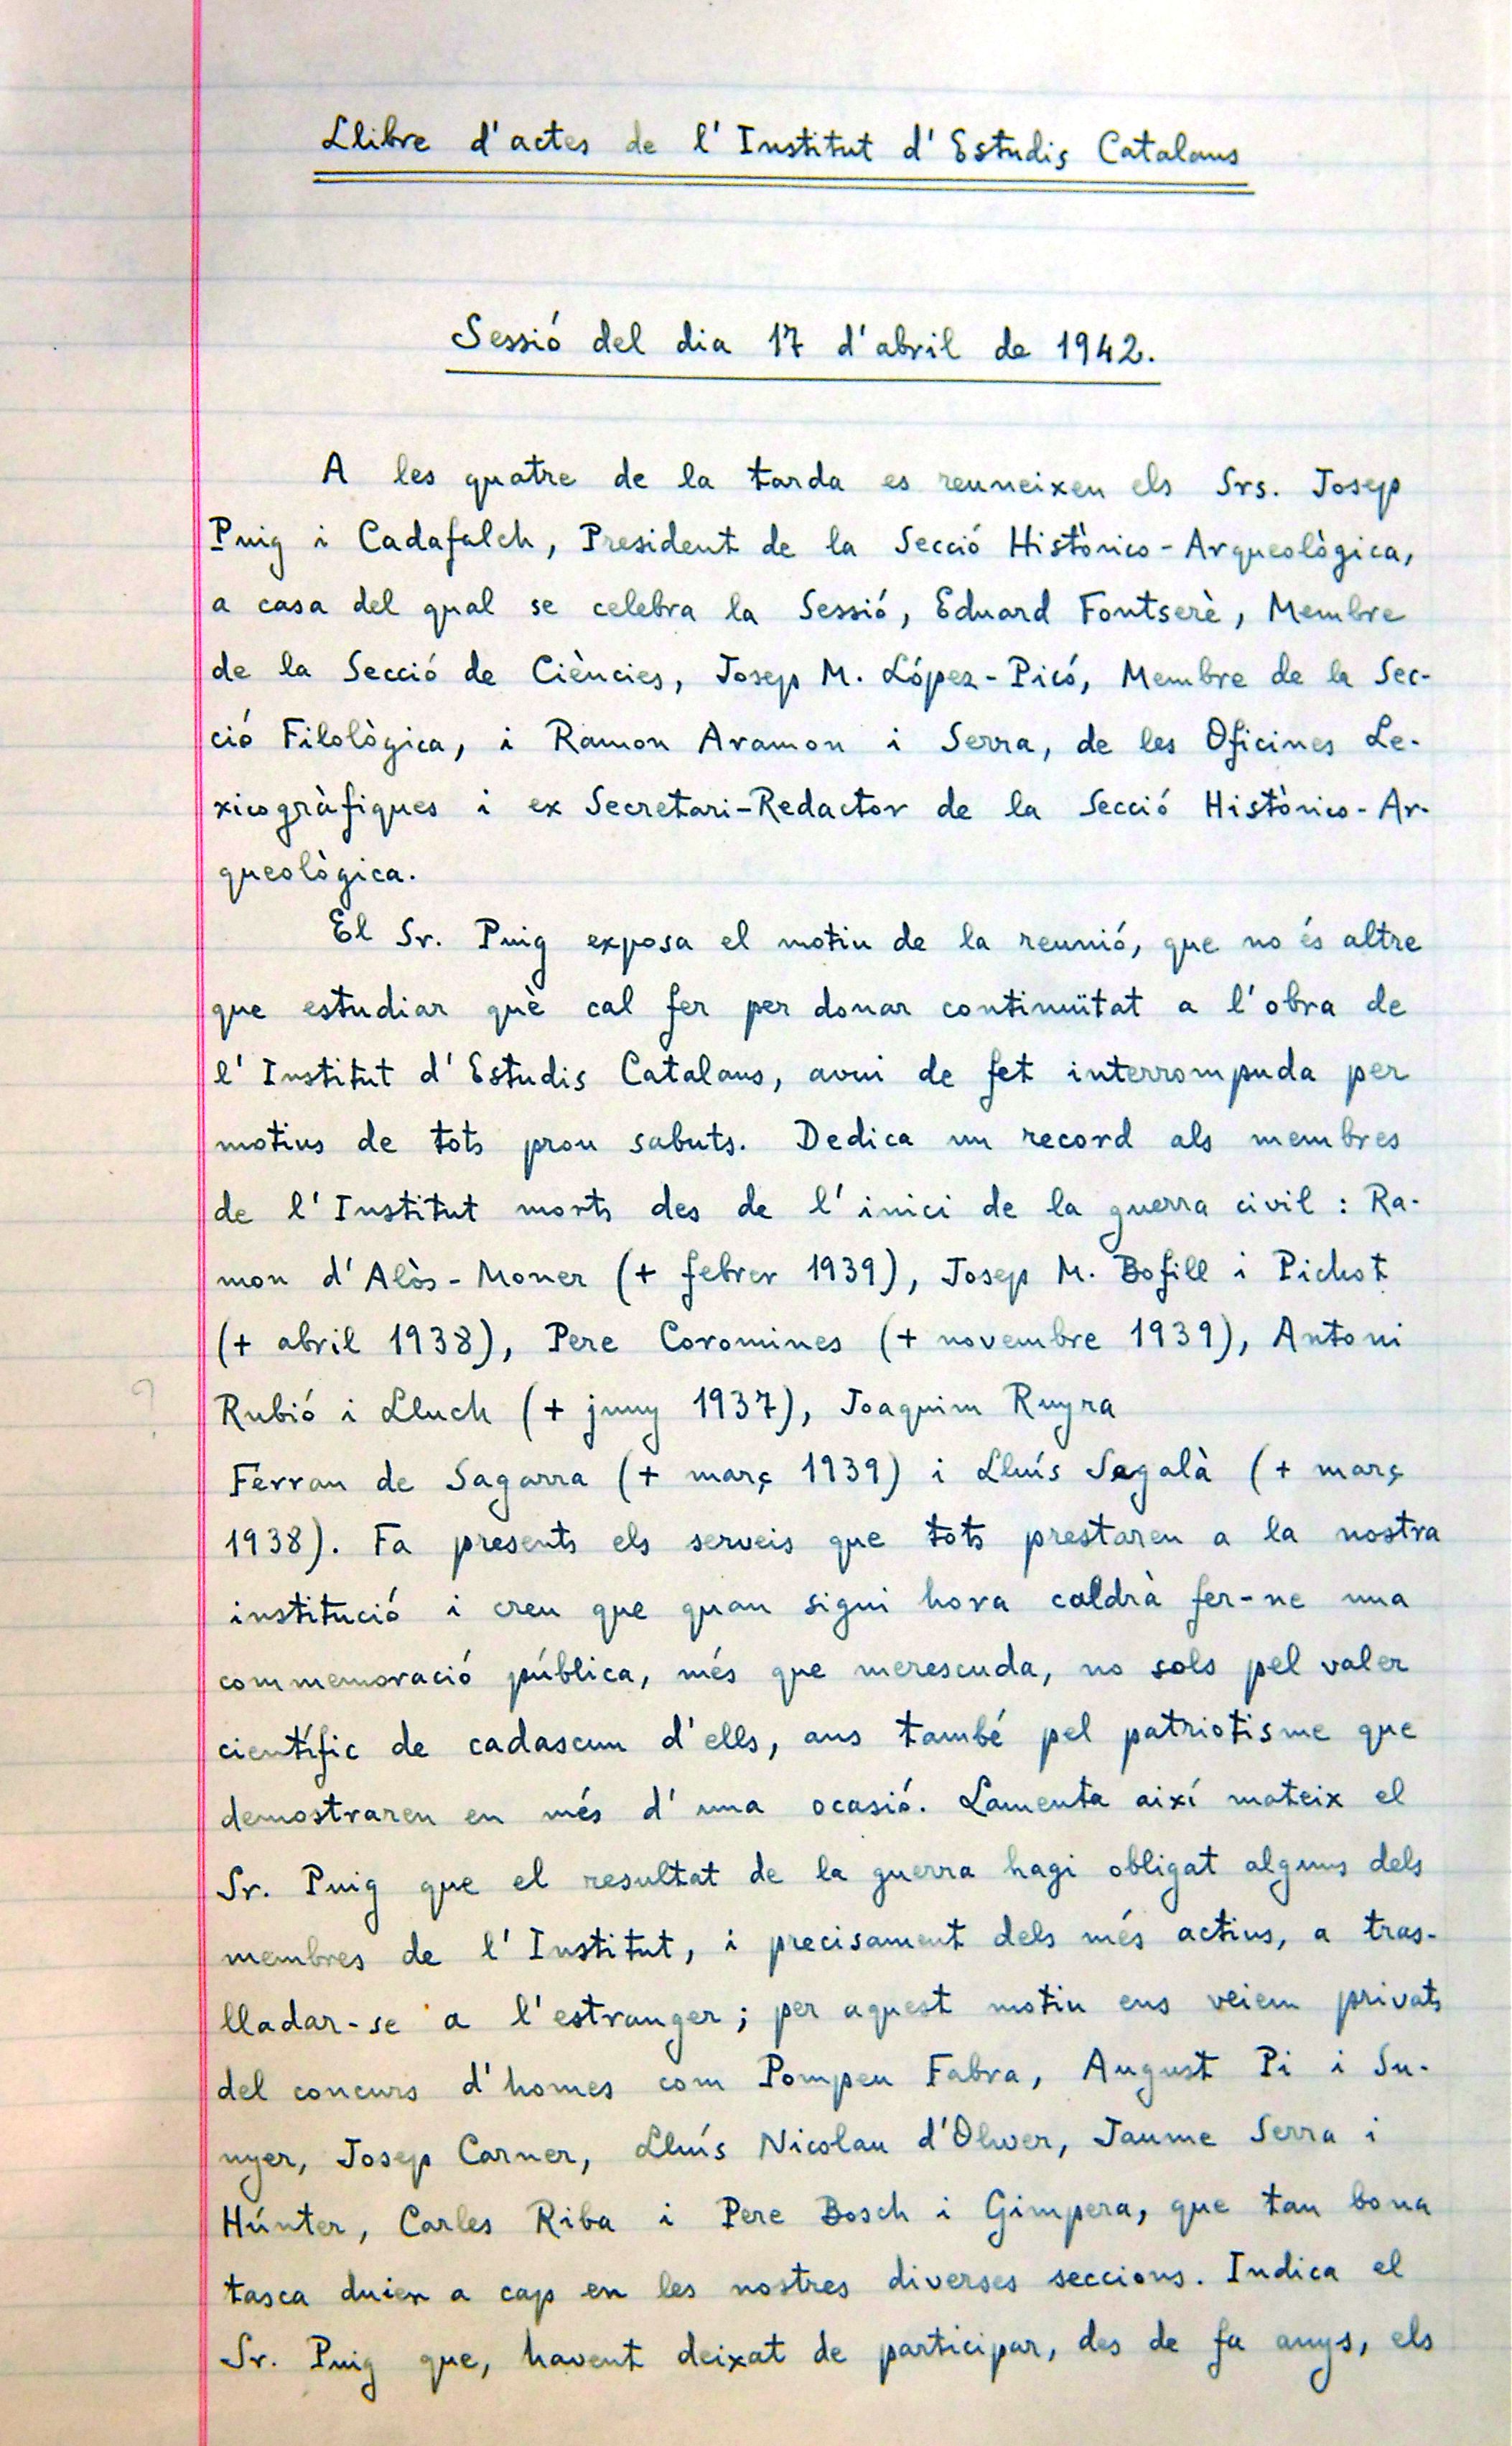 Llibre d'actes de l'Institut d'Estudis Catalans
Sessió del dia 17 d'abril de 1942.
A les quatre de la tarda es reuneixen els Srs. Josep
Puig i Cadafalch, President de la Secció Històrico-Arqueològica,
a casa del qual se celebra la Sessió, Eduard Fontserè, Membre
de la Secció de Ciències, Josep M. López-Picó, Membre de la Sec-
ció Filològica, i Ramon Aramon i Serra, de les Oficines Le-
xicogràfiques i ex Secretari-Redactor de la Secció Històrico-Ar-
queològica.
El Sr. Puig exposa el motiu de la reunió, que no és altre
que estudiar què cal fer per donar continuïtat a l'obra de
l'Institut d'Estudis Catalans, avui de fet interrompuda per
motius de tots prou sabuts. Dedica un record als membres
de l'Institut morts des de l'inici de la guerra civil: Ra-
mon d'Alòs-Moner (+ febrer 1939), Josep M. Bofill i Pichot
(+ abril 1938), Pere Coromines (+ novembre 1939), Antoni
?
Rubió i Lluch (+ juny 1937), Joaquim Ruyra
Ferran de Sagarra (+ març 1939) i Lluís Segalà (+ març
1938). Fa presents els serveis que tots prestaren a la nostra
institució i creu que quan sigui hora caldrà fer-ne una
commemoració pública, més que merescuda, no sols pel valer
científic de cadascun d'ells, ans també pel patriotisme que
demostraren en més d'una ocasió. Lamenta així mateix el
Sr. Puig que el resultat de la guerra hagi obligat alguns dels
membres de l'Institut, i precisament dels més actius, a tras-
lladar-se a l'estranger; per aquest motiu ens veiem privats
del concurs d'homes com Pompeu Fabra, August Pi i Su-
nyer, Josep Carner, Lluís Nicolau d'Olwer, Jaume Serra i
Húnter, Carles Riba i Pere Bosch i Gimpera, que tan bona
tasca duien a cap en les nostres diverses seccions. Indica el
Sr. Puig que, havent deixat de participar, des de fa anys, els